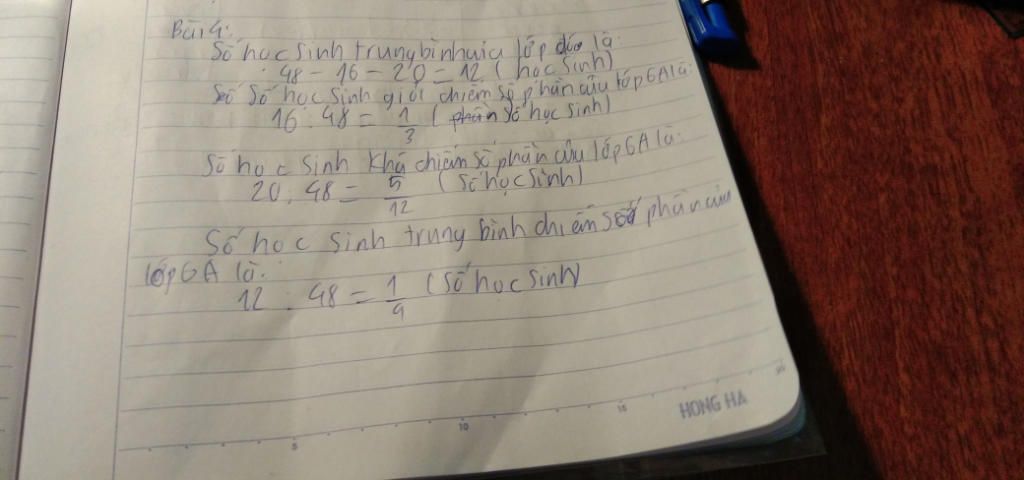 Bài 4:
Số học sinh trung bình của lớp đó là:
48 - 16 - 20 = 12 (học sinh)
Số số học sinh giỏi chiếm số phần của lớp 6A là:
16 : 48 = 1/3 (phần số học sinh)
Số học sinh khá chiếm số phần của lớp 6A là:
20 : 48 = 5/12 (số học sinh)
Số học sinh trung bình chiếm số phần của
lớp 6A là:
12 : 48 = 1/4 (số học sinh)
5 10 15 20
HONG HA